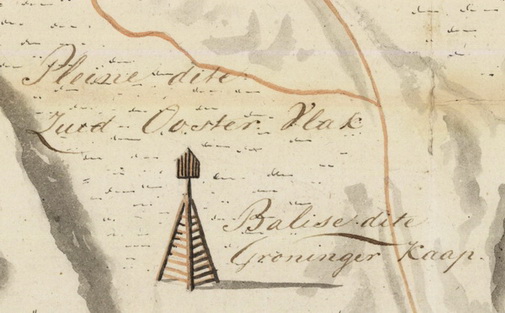 Pleine dite
Zuid Ooster Vlak
Balise dite
Groninger Kaap.